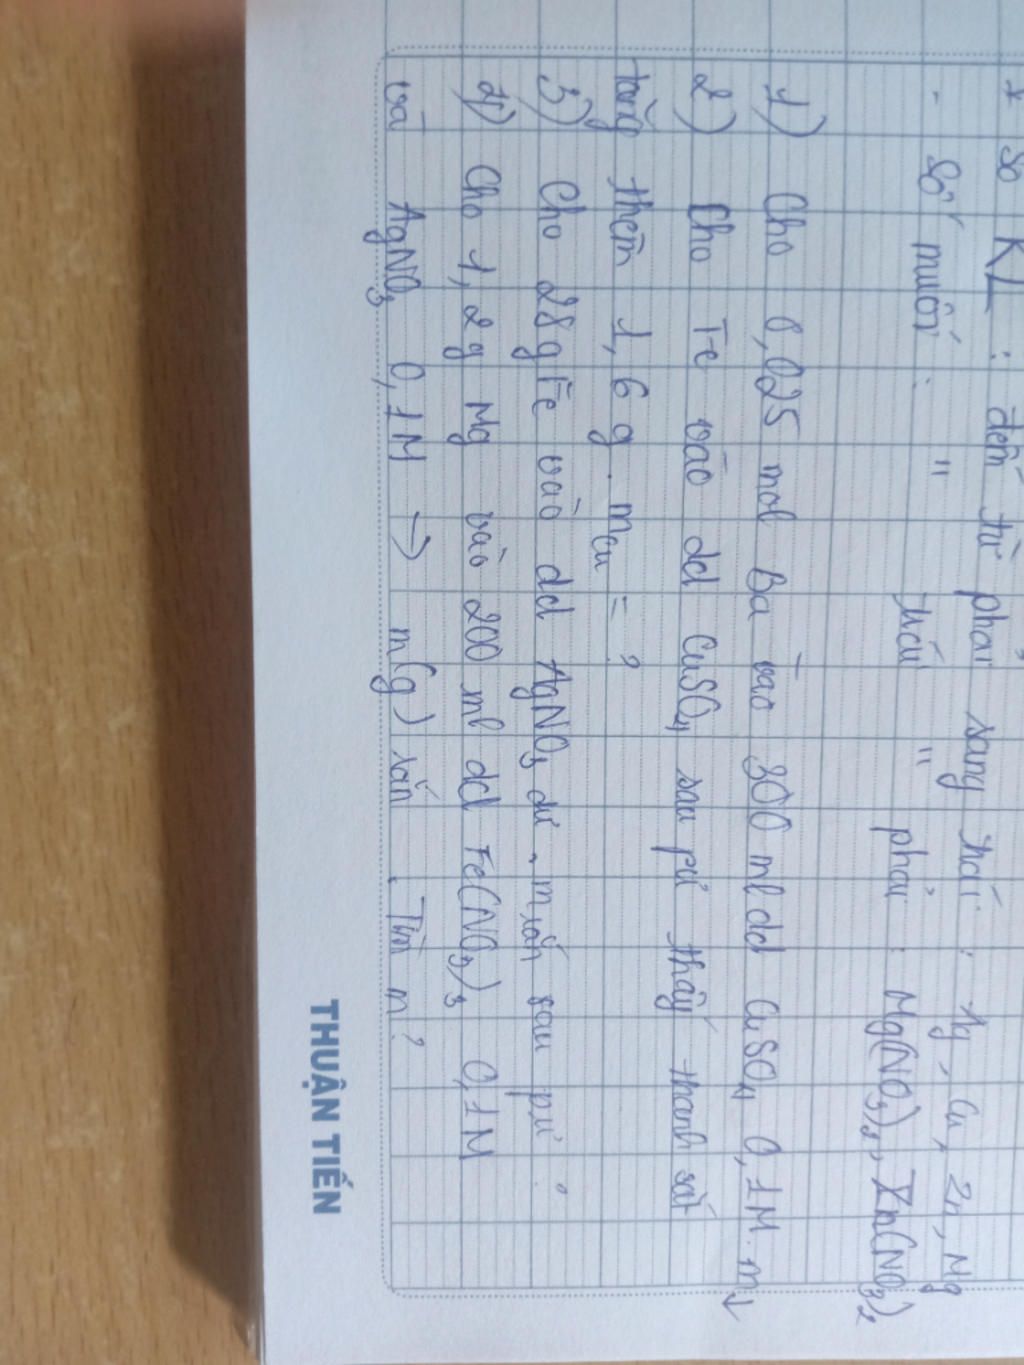 * Số KL : đếm từ phải sang trái : Ag, Cu, Zn, Mg
- Số muối : " trái " phải : Mg(NO3)2, Zn(NO3)2
1) Cho 0,025 mol Ba vào 300 ml dd CuSO4 0,1M. m↓
2) Cho Fe vào dd CuSO4 sau pư thấy thanh sắt
tăng thêm 1,6 g. mCu = ?
3) Cho 28g Fe vào dd AgNO3 dư. m rắn sau pư ?
4) Cho 1,2g Mg vào 200 ml dd Fe(NO3)3 0,1M
và AgNO3 0,1M → m(g) rắn. Tìm m?
THUẬN TIẾN